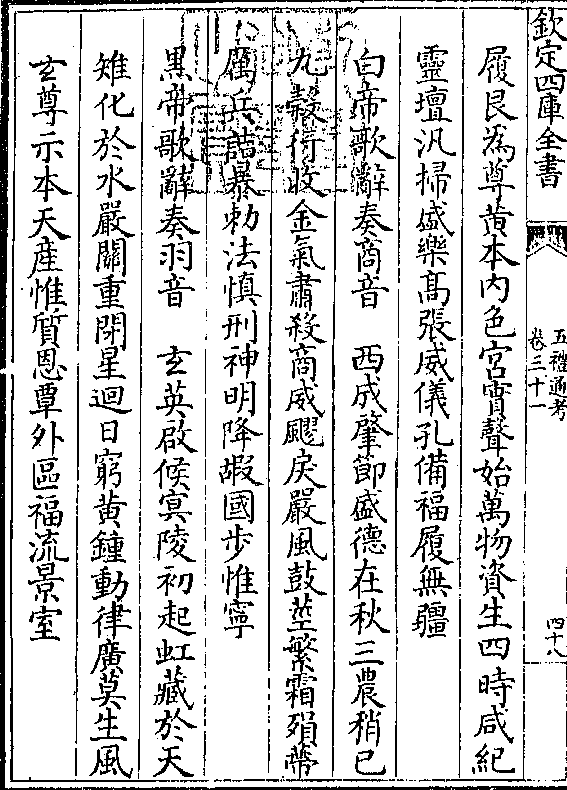 欽定四庫全書
五禮通考
卷三十一
四十八
履艮為尊黄本内色宫實聲始萬物資生四時咸紀
靈壇汎掃盛樂髙張威儀孔備福履無疆
白帝歌辭奏商音　西成肇節盛德在秋三農稍已
九糓行收金氣肅殺商威飈戾嚴風鼓莖繁霜殞蔕
厲兵詰暴勅法慎刑神明降嘏國步惟寧
黒帝歌辭奏羽音　𤣥英啟候㝠陵初起虹藏於天
雉化於水嚴關重閉星迴日窮黄鍾動律廣莫生風
𤣥尊示本天産惟質恩覃外區福流景室